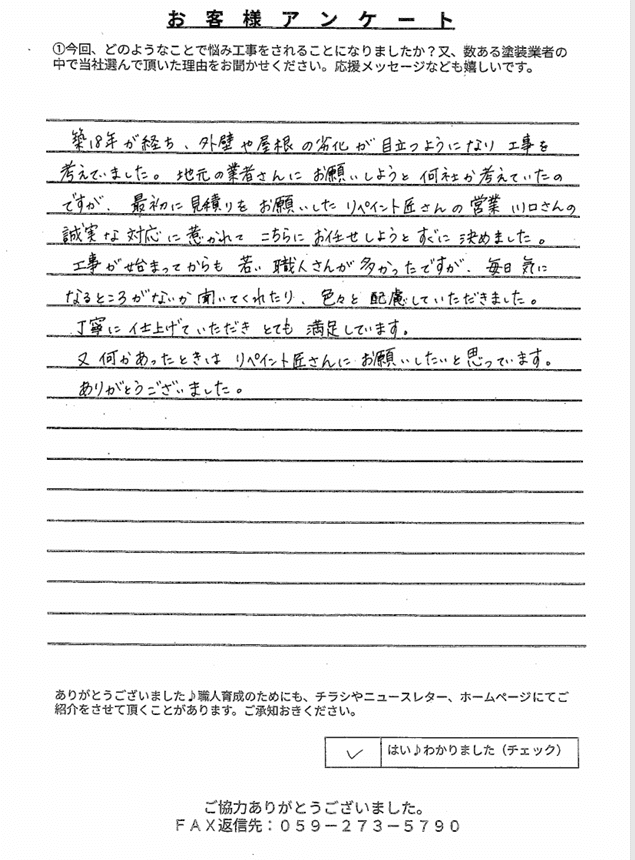 お客様アンケート
①今回、どのようなことで悩み工事をされることになりましたか？又、数ある塗装業者の
中で当社選んで頂いた理由をお聞かせください。応援メッセージなども嬉しいです。
築18年が経ち、外壁や屋根の劣化が目立つようになり工事を
考えていました。地元の業者さんにお願いしようと何社か考えていたの
ですが、最初に見積りをお願いしたリペイント匠さんの営業川口さんの
誠実な対応に惹かれてこちらにお任せしようとすぐに決めました。
工事が始まってからも若い職人さんが多かったですが、毎日気に
なるところがないか聞いてくれたり、色々と配慮していただきました。
丁寧に仕上げていただきとても満足しています。
又何かあったときはリペイント匠さんにお願いしたいと思っています。
ありがとうございました。
ありがとうございました♪職人育成のためにも、チラシやニュースレター、ホームページにてご
紹介をさせて頂くことがあります。ご承知おきください。
✓ はい♪わかりました（チェック）
ご協力ありがとうございました。
ＦＡＸ返信先：０５９－２７３－５７９０